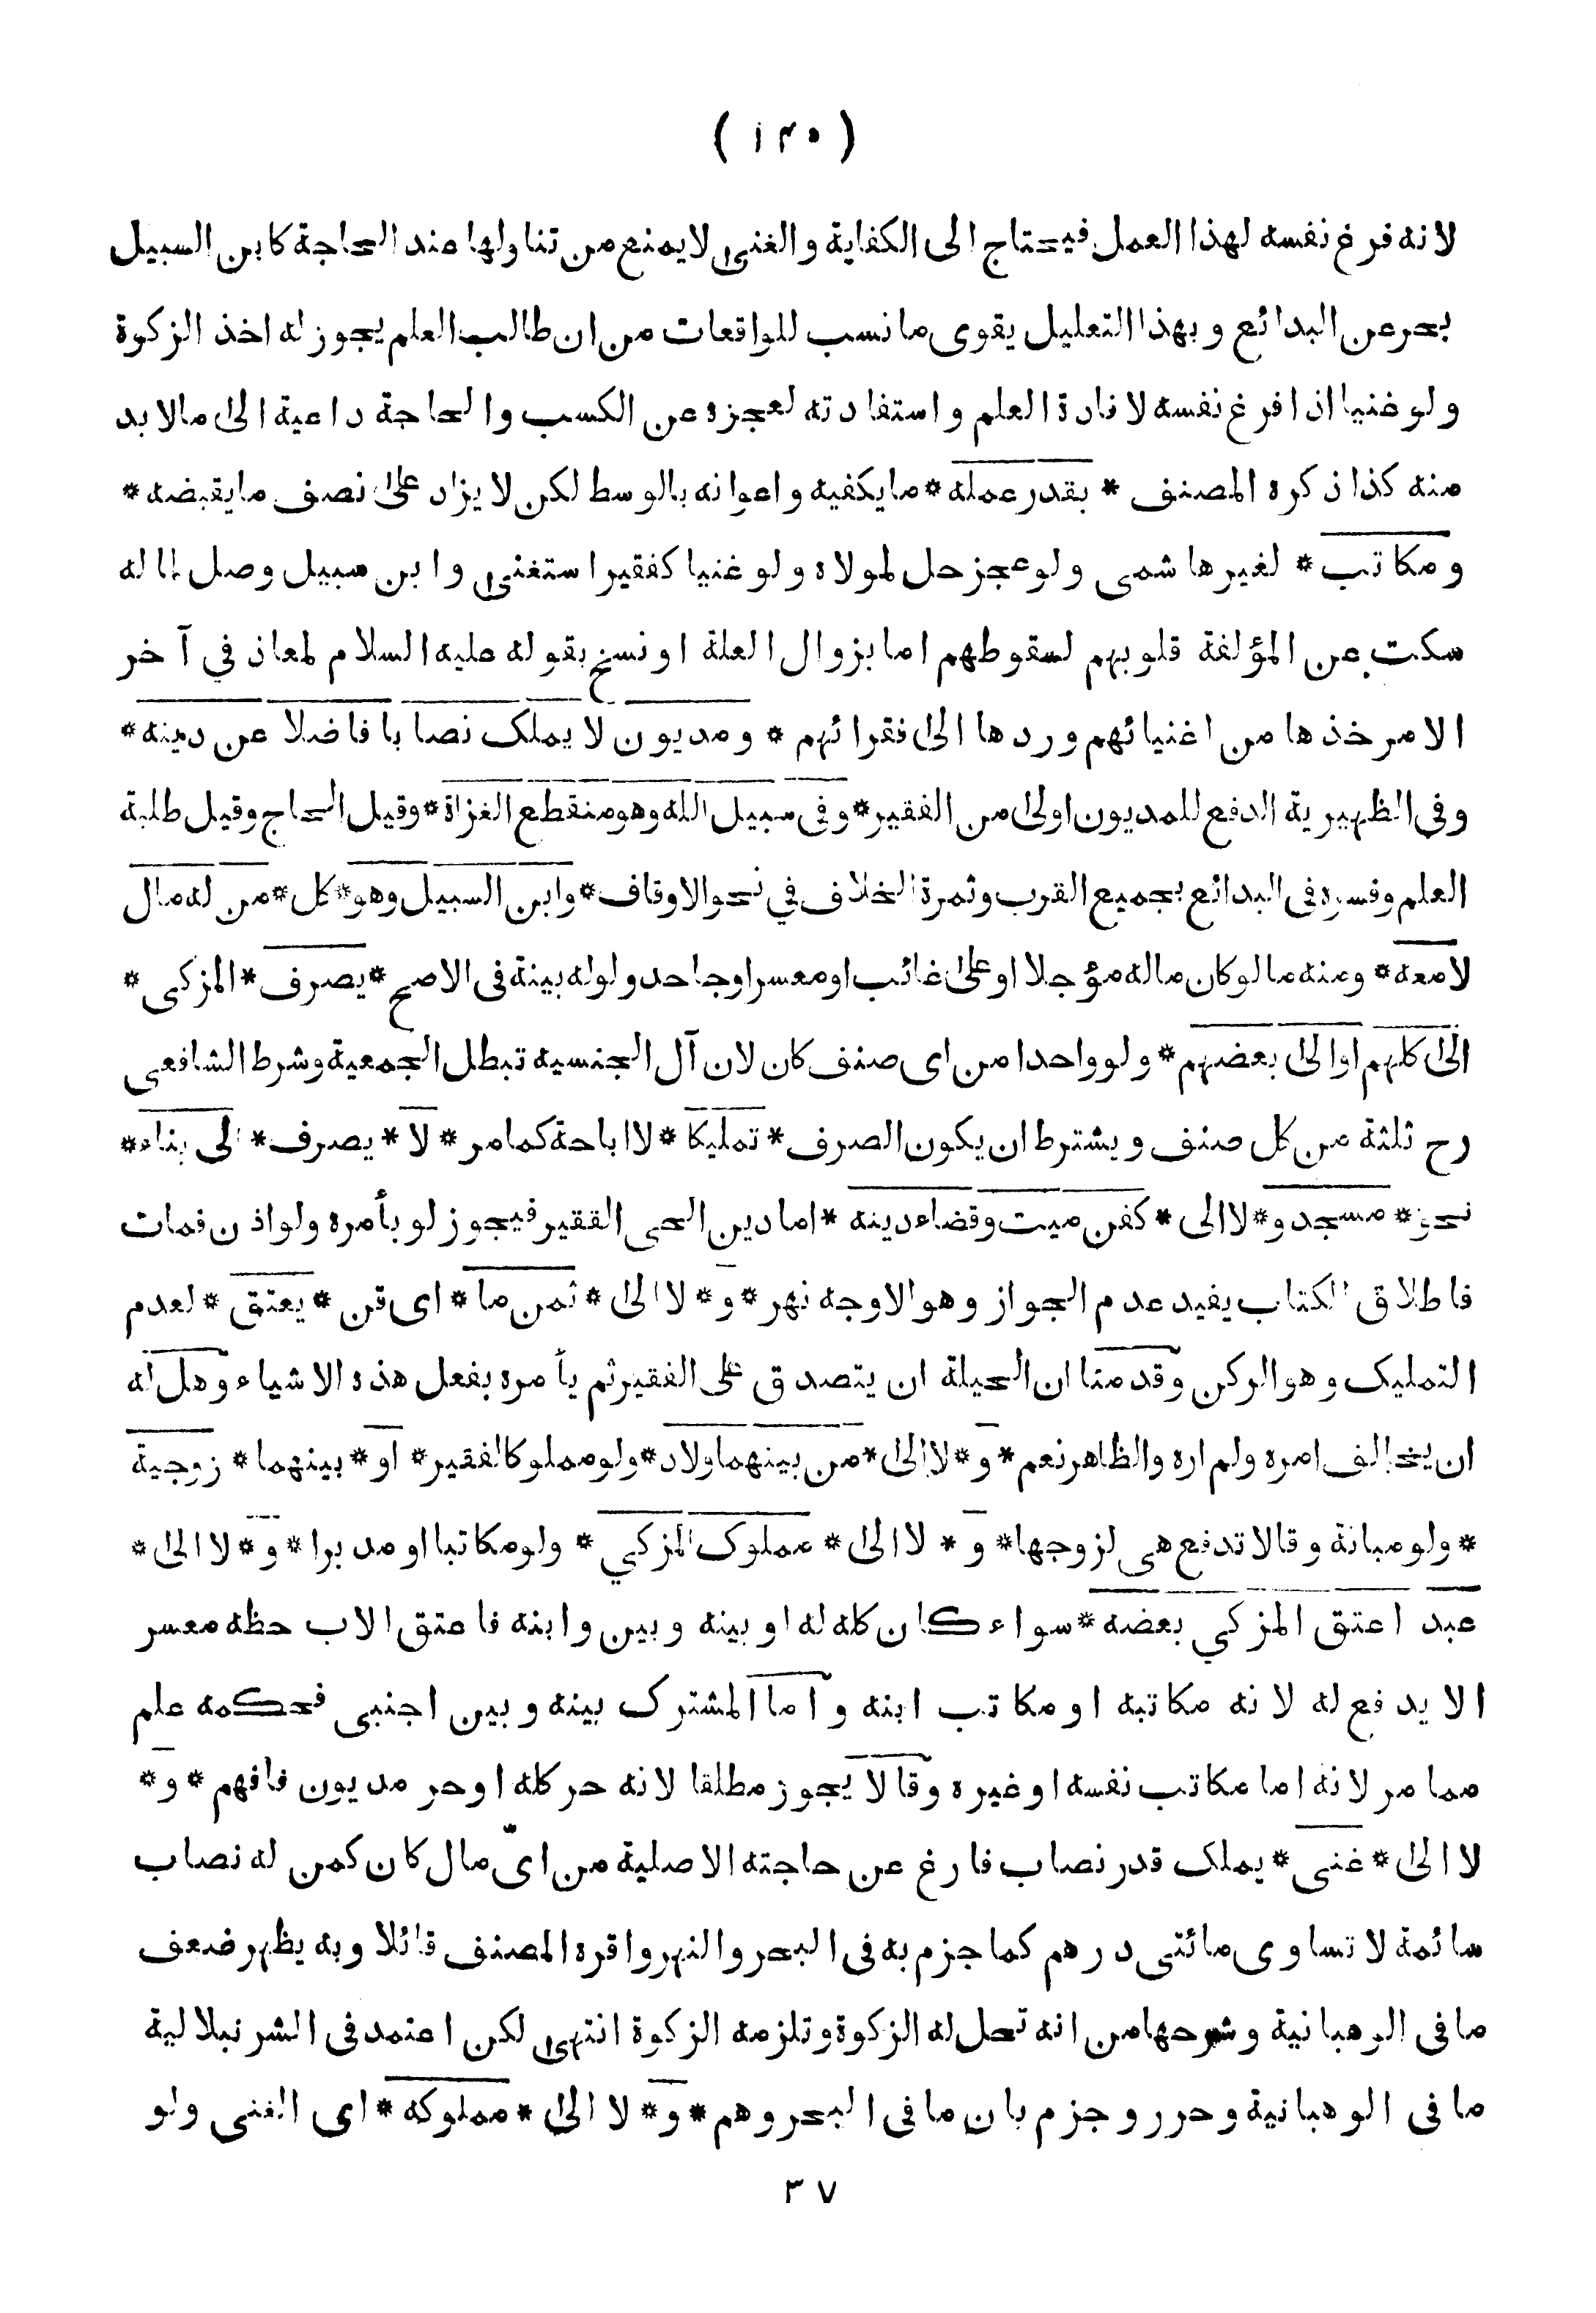 ( ١٣٥ )
لانه فرغ نفسه لهذا العمل فيحتاج الى الكفاية والغنى لا يمنع من تناولها عند الحاجة كابن السبيل
بحر عن البدائع وبهذا التعليل يقوى ما نسب للواقعات من ان طالب العلم يجوز له اخذ الزكوة
ولو غنيا اذا فرغ نفسه لافادة العلم واستفادته لعجزه عن الكسب والحاجة داعية الى مالا بد
منه كذا ذكره المصنف * بقدر عمله * ما يكفيه واعوانه بالوسط لكن لا يزاد على نصف ما يقبضه *
ومكاتب * لغير هاشمى ولو عجز حل لمولاه ولو غنيا كفقير استغنى وابن سبيل وصل لماله
سكت عن المؤلفة قلوبهم لسقوطهم اما بزوال العلة او نسخ بقوله عليه السلام لمعاذ في آخر
الامر خذها من اغنيائهم وردها الى فقرائهم * ومديون لا يملك نصابا فاضلا عن دينه *
وفى الظهيرية الدفع للمديون اولى من الفقير * وفى سبيل الله وهو منقطع الغزاة * وقيل الحاج وقيل طلبة
العلم وفسره فى البدائع بجميع القرب وثمرة الخلاف في نحو الاوقاف * وابن السبيل وهو * كل * من له مال
لا معه * ومنه ما لو كان ماله مؤجلا او على غائب او معسر او جاحد ولو له بينة فى الاصح * يصرف * المزكى *
الى كلهم او الى بعضهم * ولو واحدا من اى صنف كان لان آل الجنسيه تبطل الجمعية وشرط الشافعى
رح ثلثة من كل صنف ويشترط ان يكون الصرف * تمليكا * لا اباحة كما مر * لا * يصرف * الى بناء *
نحو * مسجد و * لا الى * كفن ميت وقضاء دينه * اما دين الحى الفقير فيجوز لو بأمره ولو اذن فمات
فاطلاق الكتاب يفيد عدم الجواز وهو الاوجه نهر * و * لا الى * ثمن ما * اى قن * يعتق * لعدم
التمليك وهو الركن وقدمنا ان الحيلة ان يتصدق على الفقير ثم يأمره بفعل هذه الاشياء وهل له
ان يخالف امره ولم اره والظاهر نعم * و * لا الى * من بينهما ولاد * ولو مملوكا لفقير * او * بينهما * زوجية
* ولو مبانة وقالا تدفع هى لزوجها * و * لا الى * مملوك المزكي * ولو مكاتبا او مدبرا * و * لا الى *
عبد اعتق المزكي بعضه * سواء كان كله له او بينه وبين وابنه فاعتق الاب حظه معسر
الا يدفع له لانه مكاتبه او مكاتب ابنه واما المشترك بينه وبين اجنبى فحكمه علم
مما مر لانه اما مكاتب نفسه او غيره وقالا يجوز مطلقا لانه حر كله او حر مديون فافهم * و *
لا الى * غنى * يملك قدر نصاب فارغ عن حاجته الاصلية من اىّ مال كان كمن له نصاب
سائمة لا تساوى مائتى درهم كما جزم به فى البحر والنهر واقره المصنف قائلا وبه يظهر ضعف
ما فى الوهبانية وشرحها من انه تحل له الزكوة وتلزمه الزكوة انتهى لكن اعتمد فى الشرنبلالية
ما فى الوهبانية وحرر وجزم بان ما فى البحر وهم * و * لا الى * مملوكه * اى الغنى ولو
٣٧